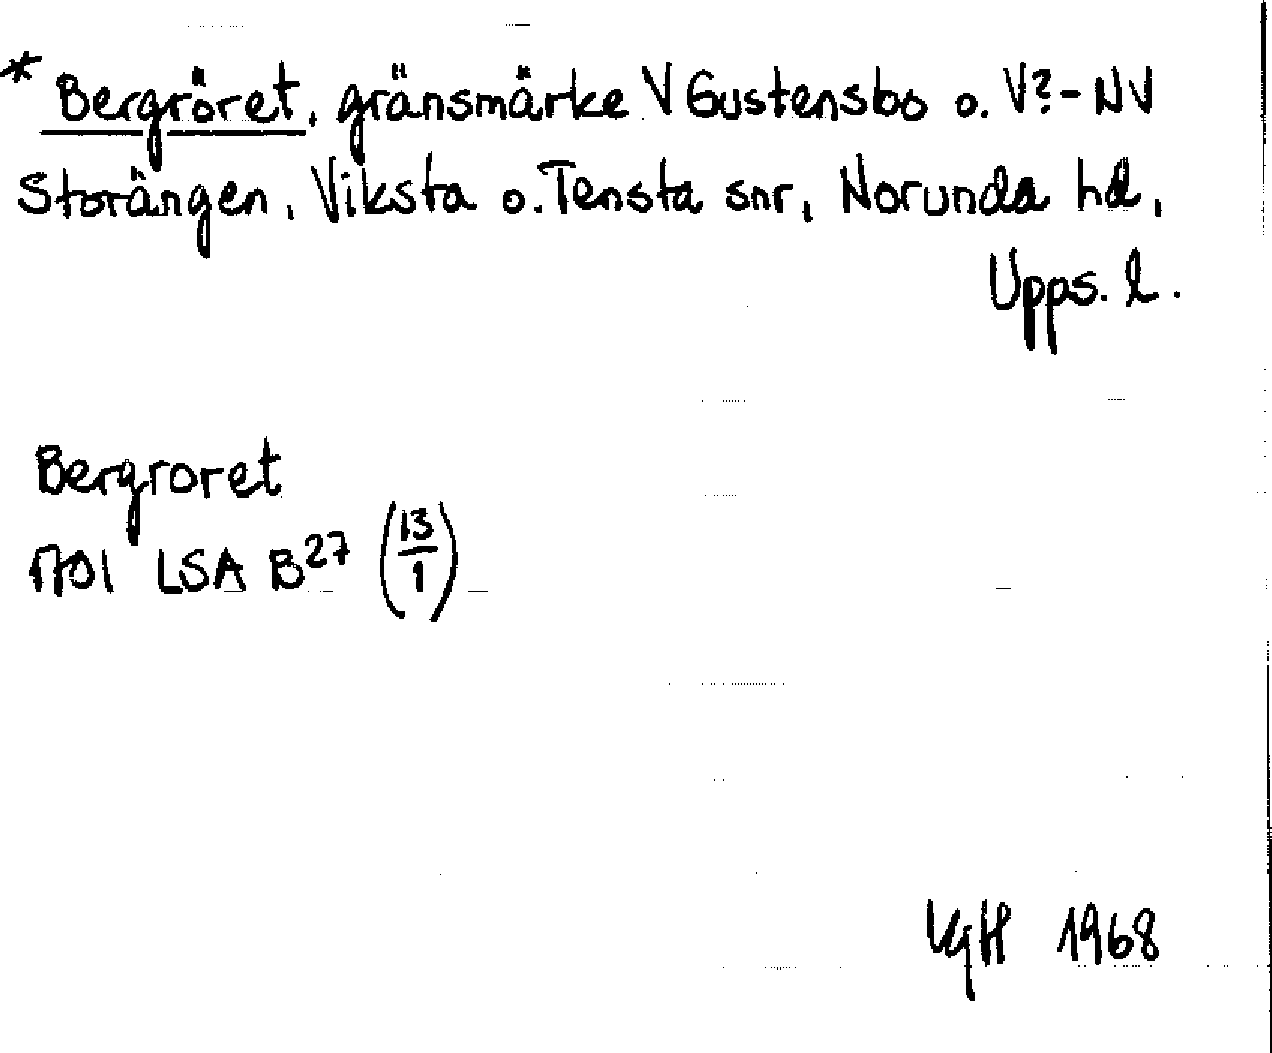 * Bergröret, gränsmärke V Gustensbo o. V?-NV
Storängen, Viksta o. Tensta snr, Norunda hd,
Upps. l.
Bergroret
1701 LSA B27 (13/1)
VgH 1968